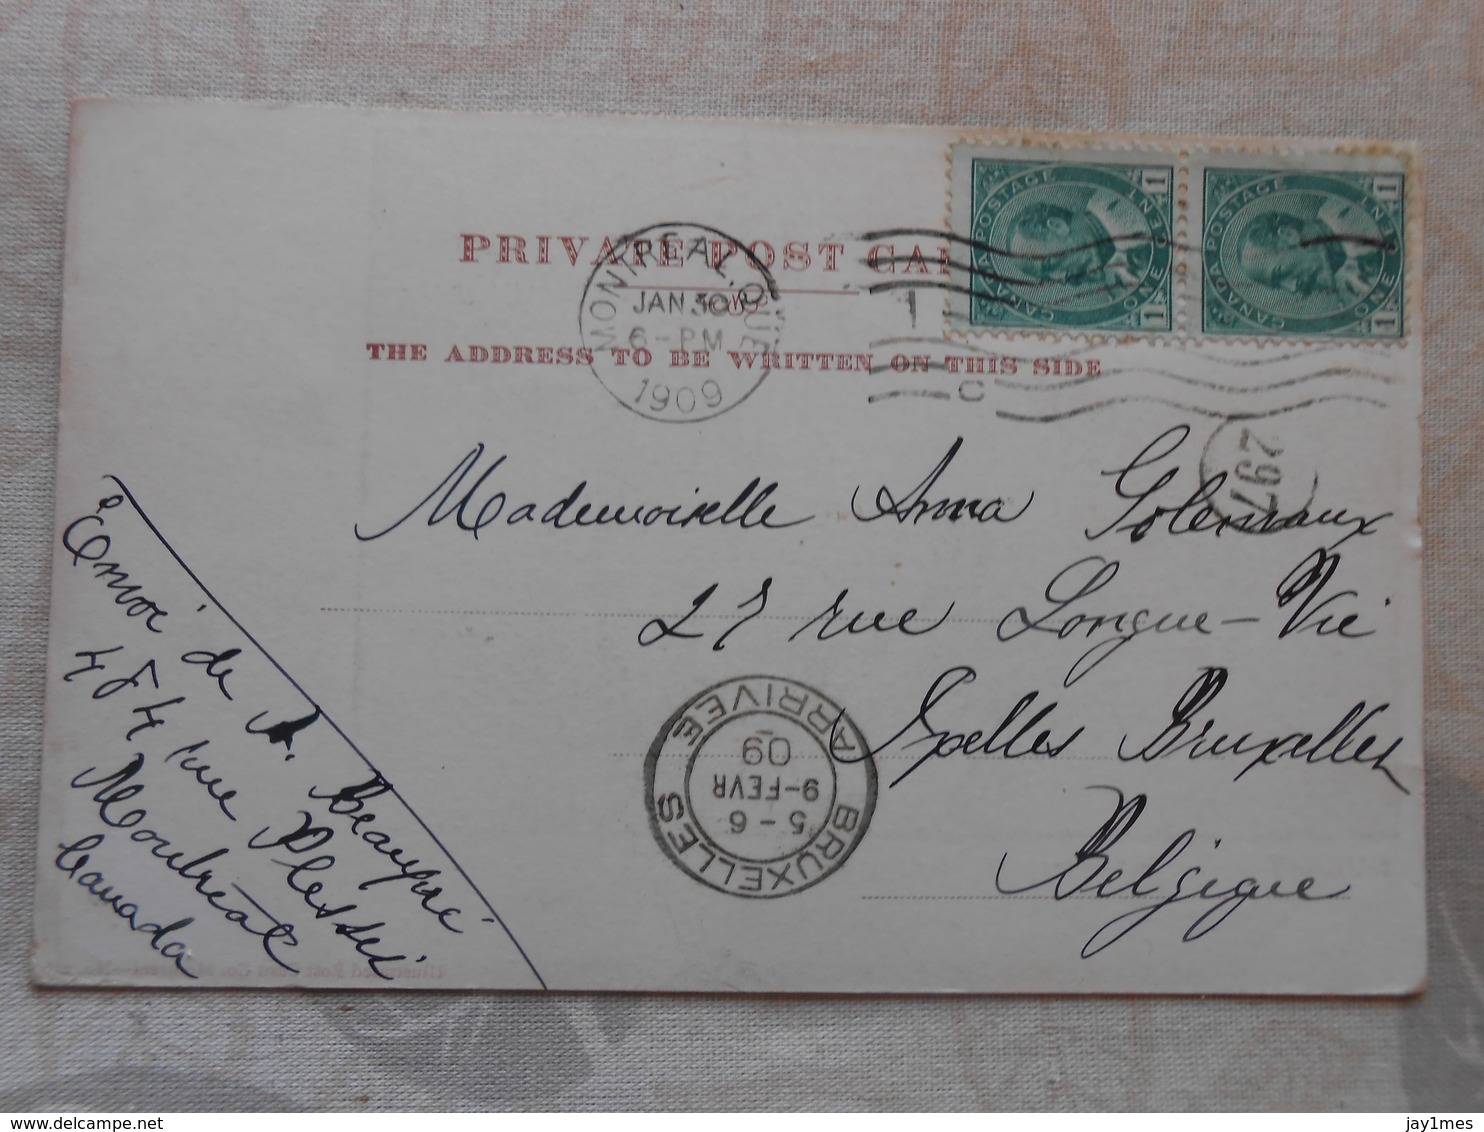 PRIVATE POST CAR
THE ADDRESS TO BE WRITTEN ON THIS SIDE
MONTREAL, QUE
JAN 30
6-PM
1909
CANADA POSTAGE
ONE CENT
1 1
CANADA POSTAGE
ONE CENT
1 1
297
Mademoiselle Anna
27 rue Longue-Vie
Ixelles Bruxelles
Belgique
BRUXELLES
5-6
9-FEVR
09
ARRIVEE
Envoi de A. Beaupré
484 rue Plessis
Montréal
Canada
Illustrated Post Card Co. Montreal
delcampe.net
jay1mes